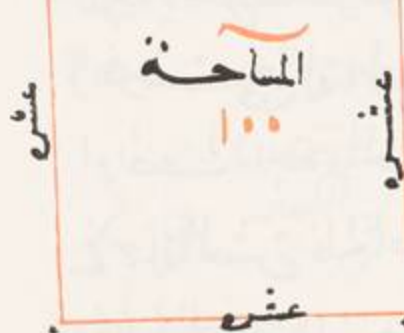 المساحة
١٠٠
عشره
عشره
عشره